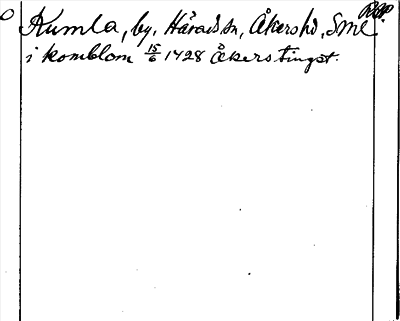 Kumla, by, Härads sn, Åkers hd, Sml.
i komblom 15/6 1428 Åkers tingst.